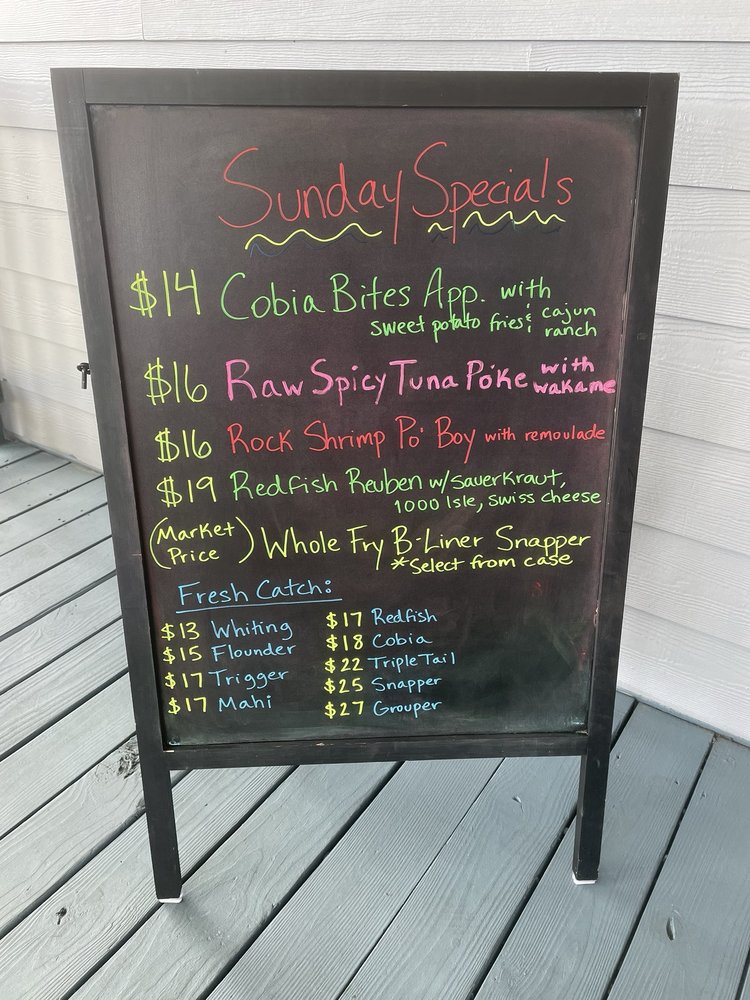 Sunday Specials
$14 Cobia Bites App. with
sweet potato fries & cajun ranch
$16 Raw Spicy Tuna Poke with wakame
$16 Rock Shrimp Po' Boy with remoulade
$19 Redfish Reuben w/sauerkraut,
1000 Isle, swiss cheese
(Market Price) Whole Fry B-Liner Snapper
*Select from case
Fresh Catch:
$13 Whiting
$15 Flounder
$17 Trigger
$17 Mahi
$17 Redfish
$18 Cobia
$22 Triple Tail
$25 Snapper
$27 Grouper